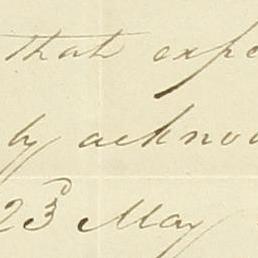 that expe
by acknow
23d May